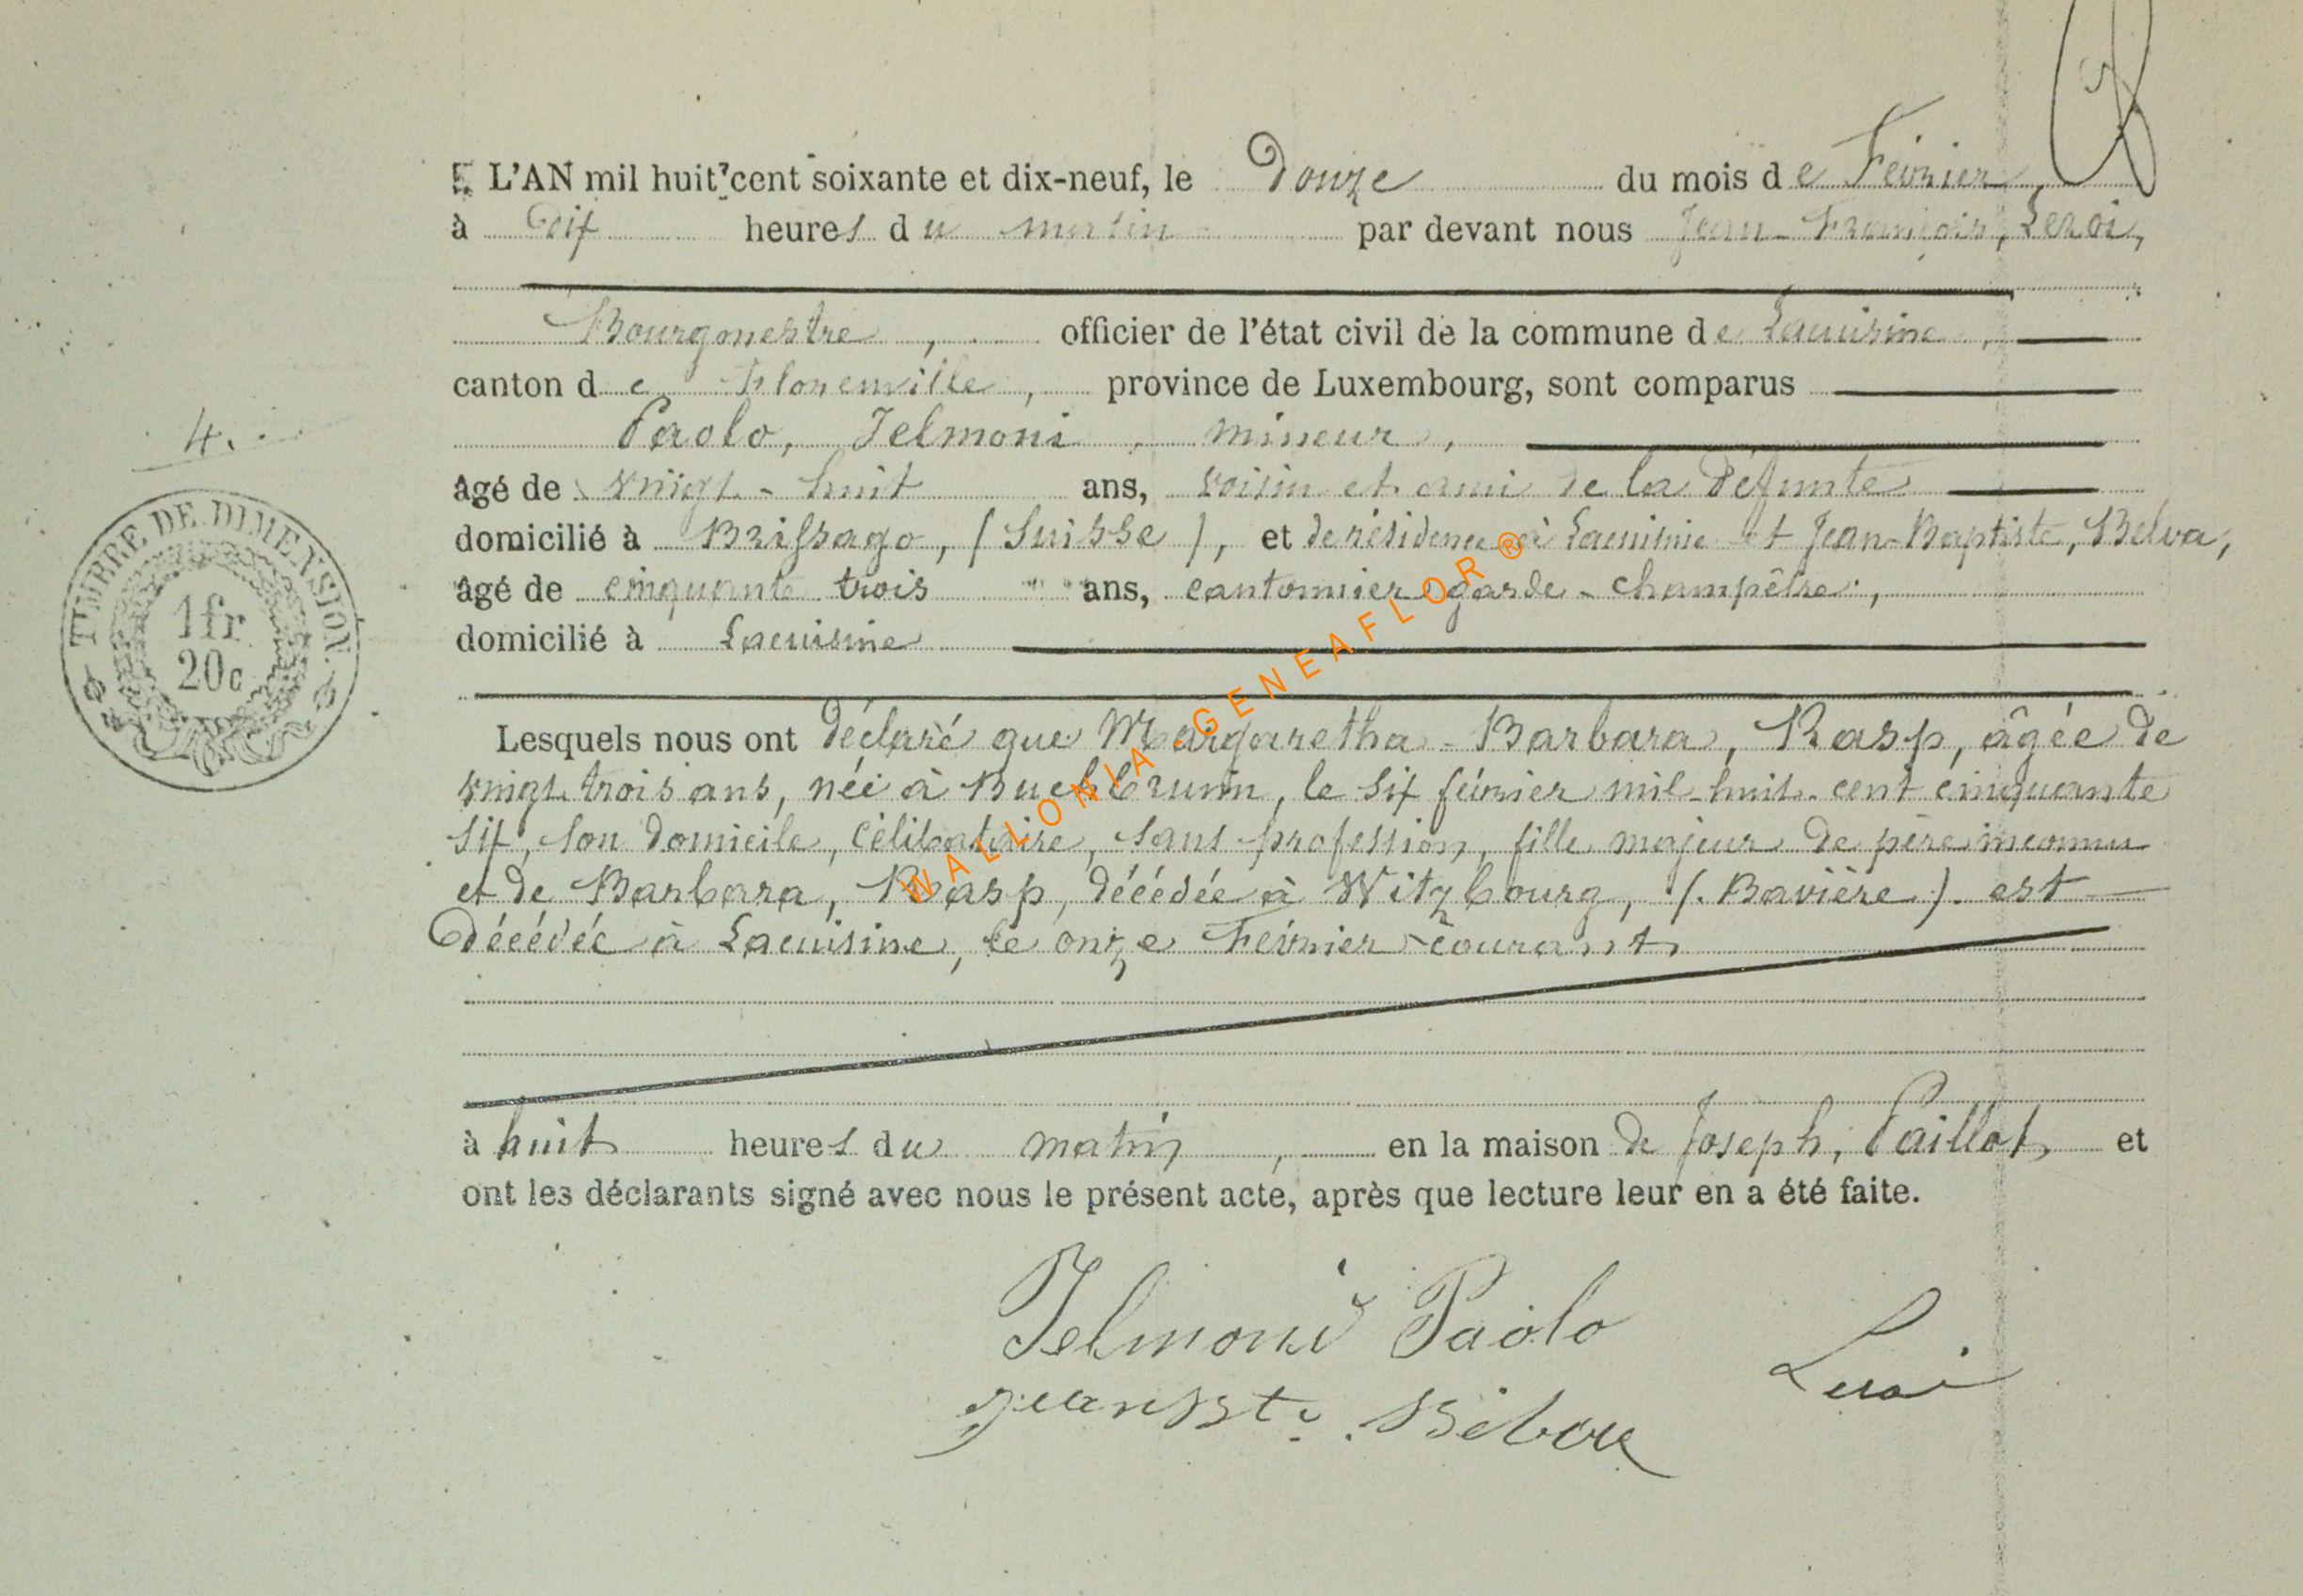 L'AN mil huit cent soixante et dix-neuf, le Douze du mois de Février,
à Dix heures du matin par devant nous Jean-François, Leroi,
Bourgmestre, officier de l'état civil de la commune de Lacuisine,
canton de Florenville, province de Luxembourg, sont comparus
Paolo, Jelmoni, mineur,
âgé de vingt-huit ans, voisin et ami de la défunte
domicilié à Brissago, (Suisse), et de résidence à Lacuisine et Jean-Baptiste, Belva,
âgé de cinquante trois ans, cantonnier garde-champêtre,
domicilié à Lacuisine
4.
TIMBRE DE DIMENSION
1fr
20c
Lesquels nous ont déclaré que Margaretha-Barbara, Rasp, âgée de
vingt trois ans, née à Buchbrunn, le six février mil-huit-cent cinquante
six, son domicile, célibataire, sans profession, fille majeur de père inconnu
et de Barbara, Rasp, décédée à Witzbourg, (Bavière) est
décédée à Lacuisine, le onze Février courant,
à huit heures du matin, en la maison de Joseph, Paillot, et
ont les déclarants signé avec nous le présent acte, après que lecture leur en a été faite.
Jelmoni Paolo
Leroi
Jean Bte.
WALLONIA GENEAFLOR ®